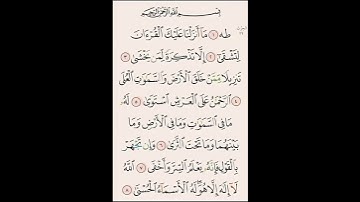 بِسْمِ ٱللَّهِ ٱلرَّحْمَٰنِ ٱلرَّحِيمِ
طه ١ مَآ أَنزَلْنَا عَلَيْكَ ٱلْقُرْءَانَ
لِتَشْقَىٰٓ ٢ إِلَّا تَذْكِرَةً لِّمَن يَخْشَىٰ ٣
تَنزِيلًا مِّمَّنْ خَلَقَ ٱلْأَرْضَ وَٱلسَّمَٰوَٰتِ ٱلْعُلَى
٤ ٱلرَّحْمَٰنُ عَلَى ٱلْعَرْشِ ٱسْتَوَىٰ ٥ لَهُۥ
مَا فِى ٱلسَّمَٰوَٰتِ وَمَا فِى ٱلْأَرْضِ وَمَا
بَيْنَهُمَا وَمَا تَحْتَ ٱلثَّرَىٰ ٦ وَإِن تَجْهَرْ
بِٱلْقَوْلِ فَإِنَّهُۥ يَعْلَمُ ٱلسِّرَّ وَأَخْفَى ٧ ٱللَّهُ
لَآ إِلَٰهَ إِلَّا هُوَ لَهُ ٱلْأَسْمَآءُ ٱلْحُسْنَىٰ ٨